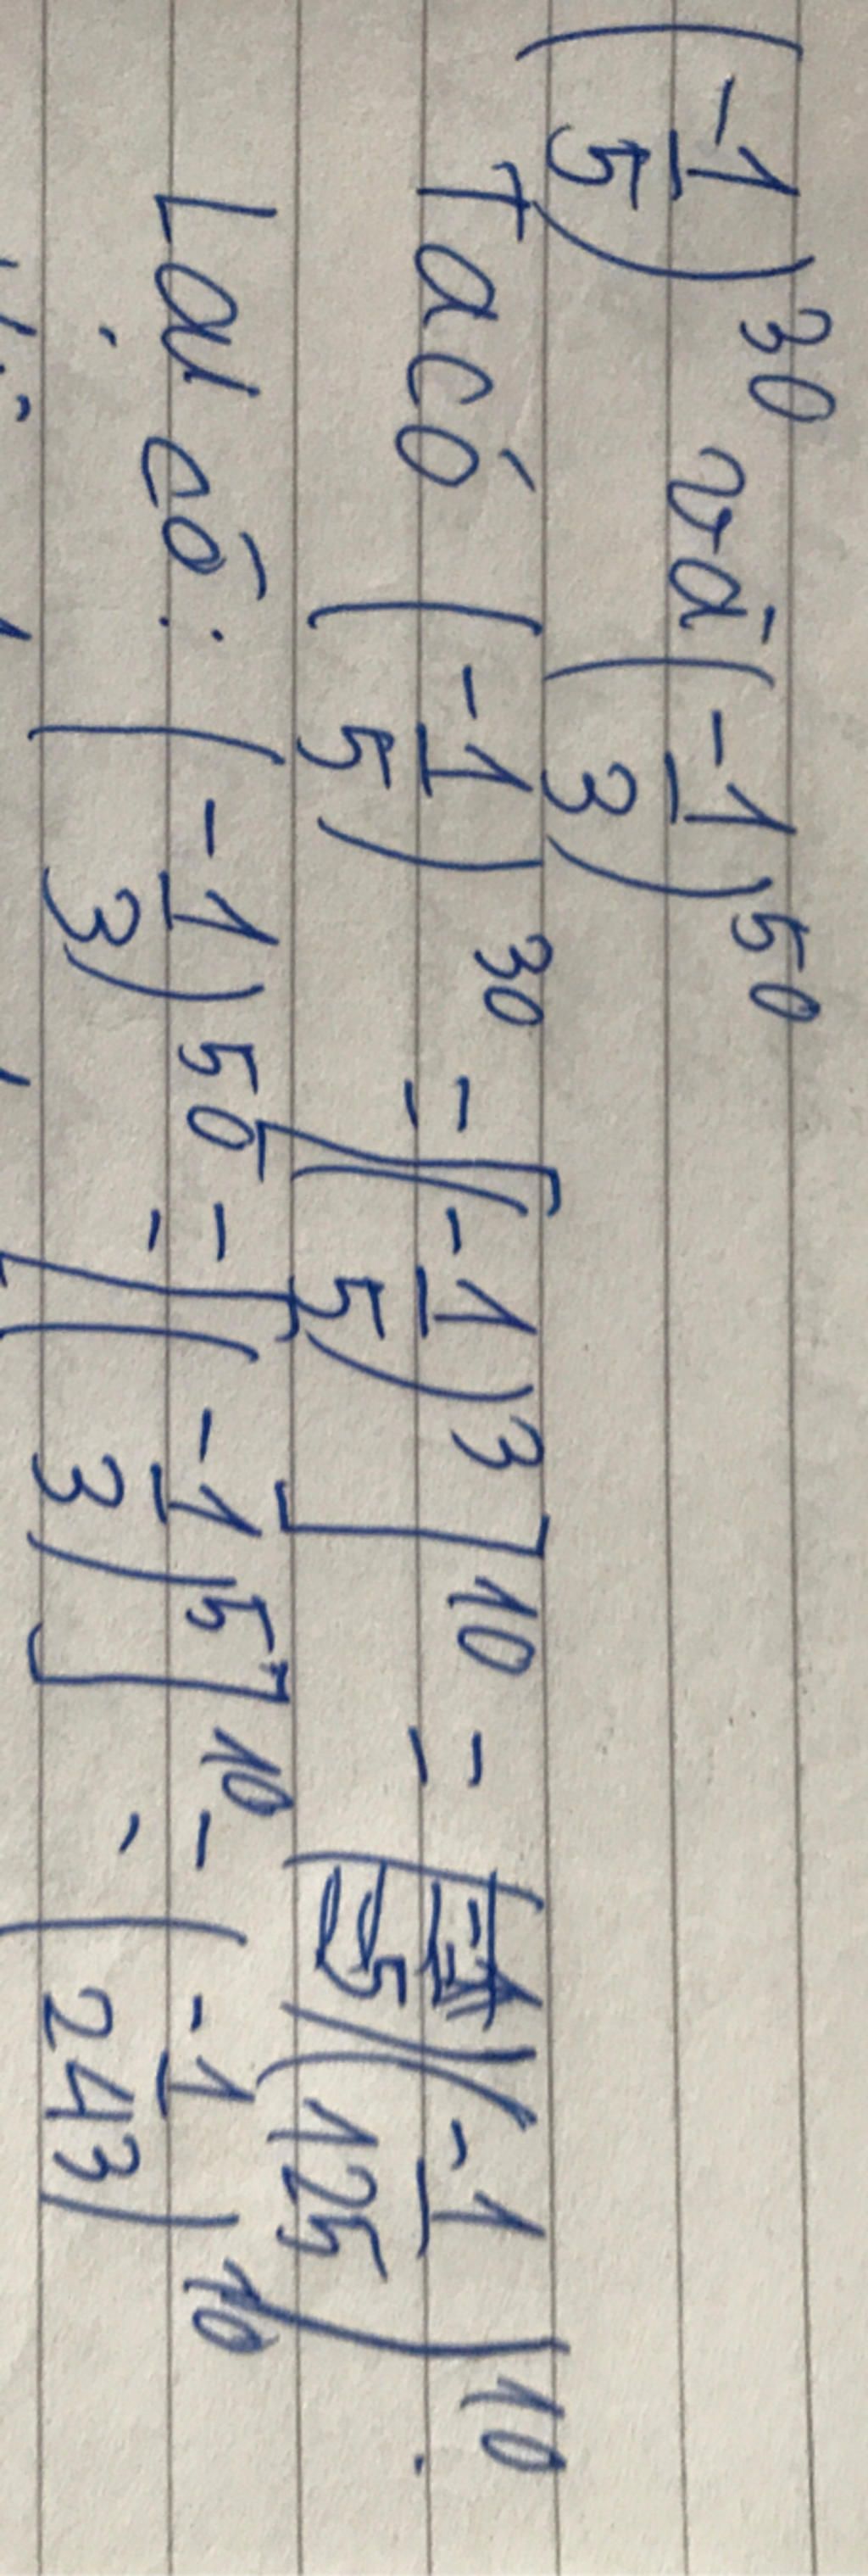 (-1/5)^30 và (-1/3)^50
Ta có (-1/5)^30 = [(-1/5)^3]^10 = (-1/125)^10.
Lại có: (-1/3)^50 = [(-1/3)^5]^10 = (-1/243)^10